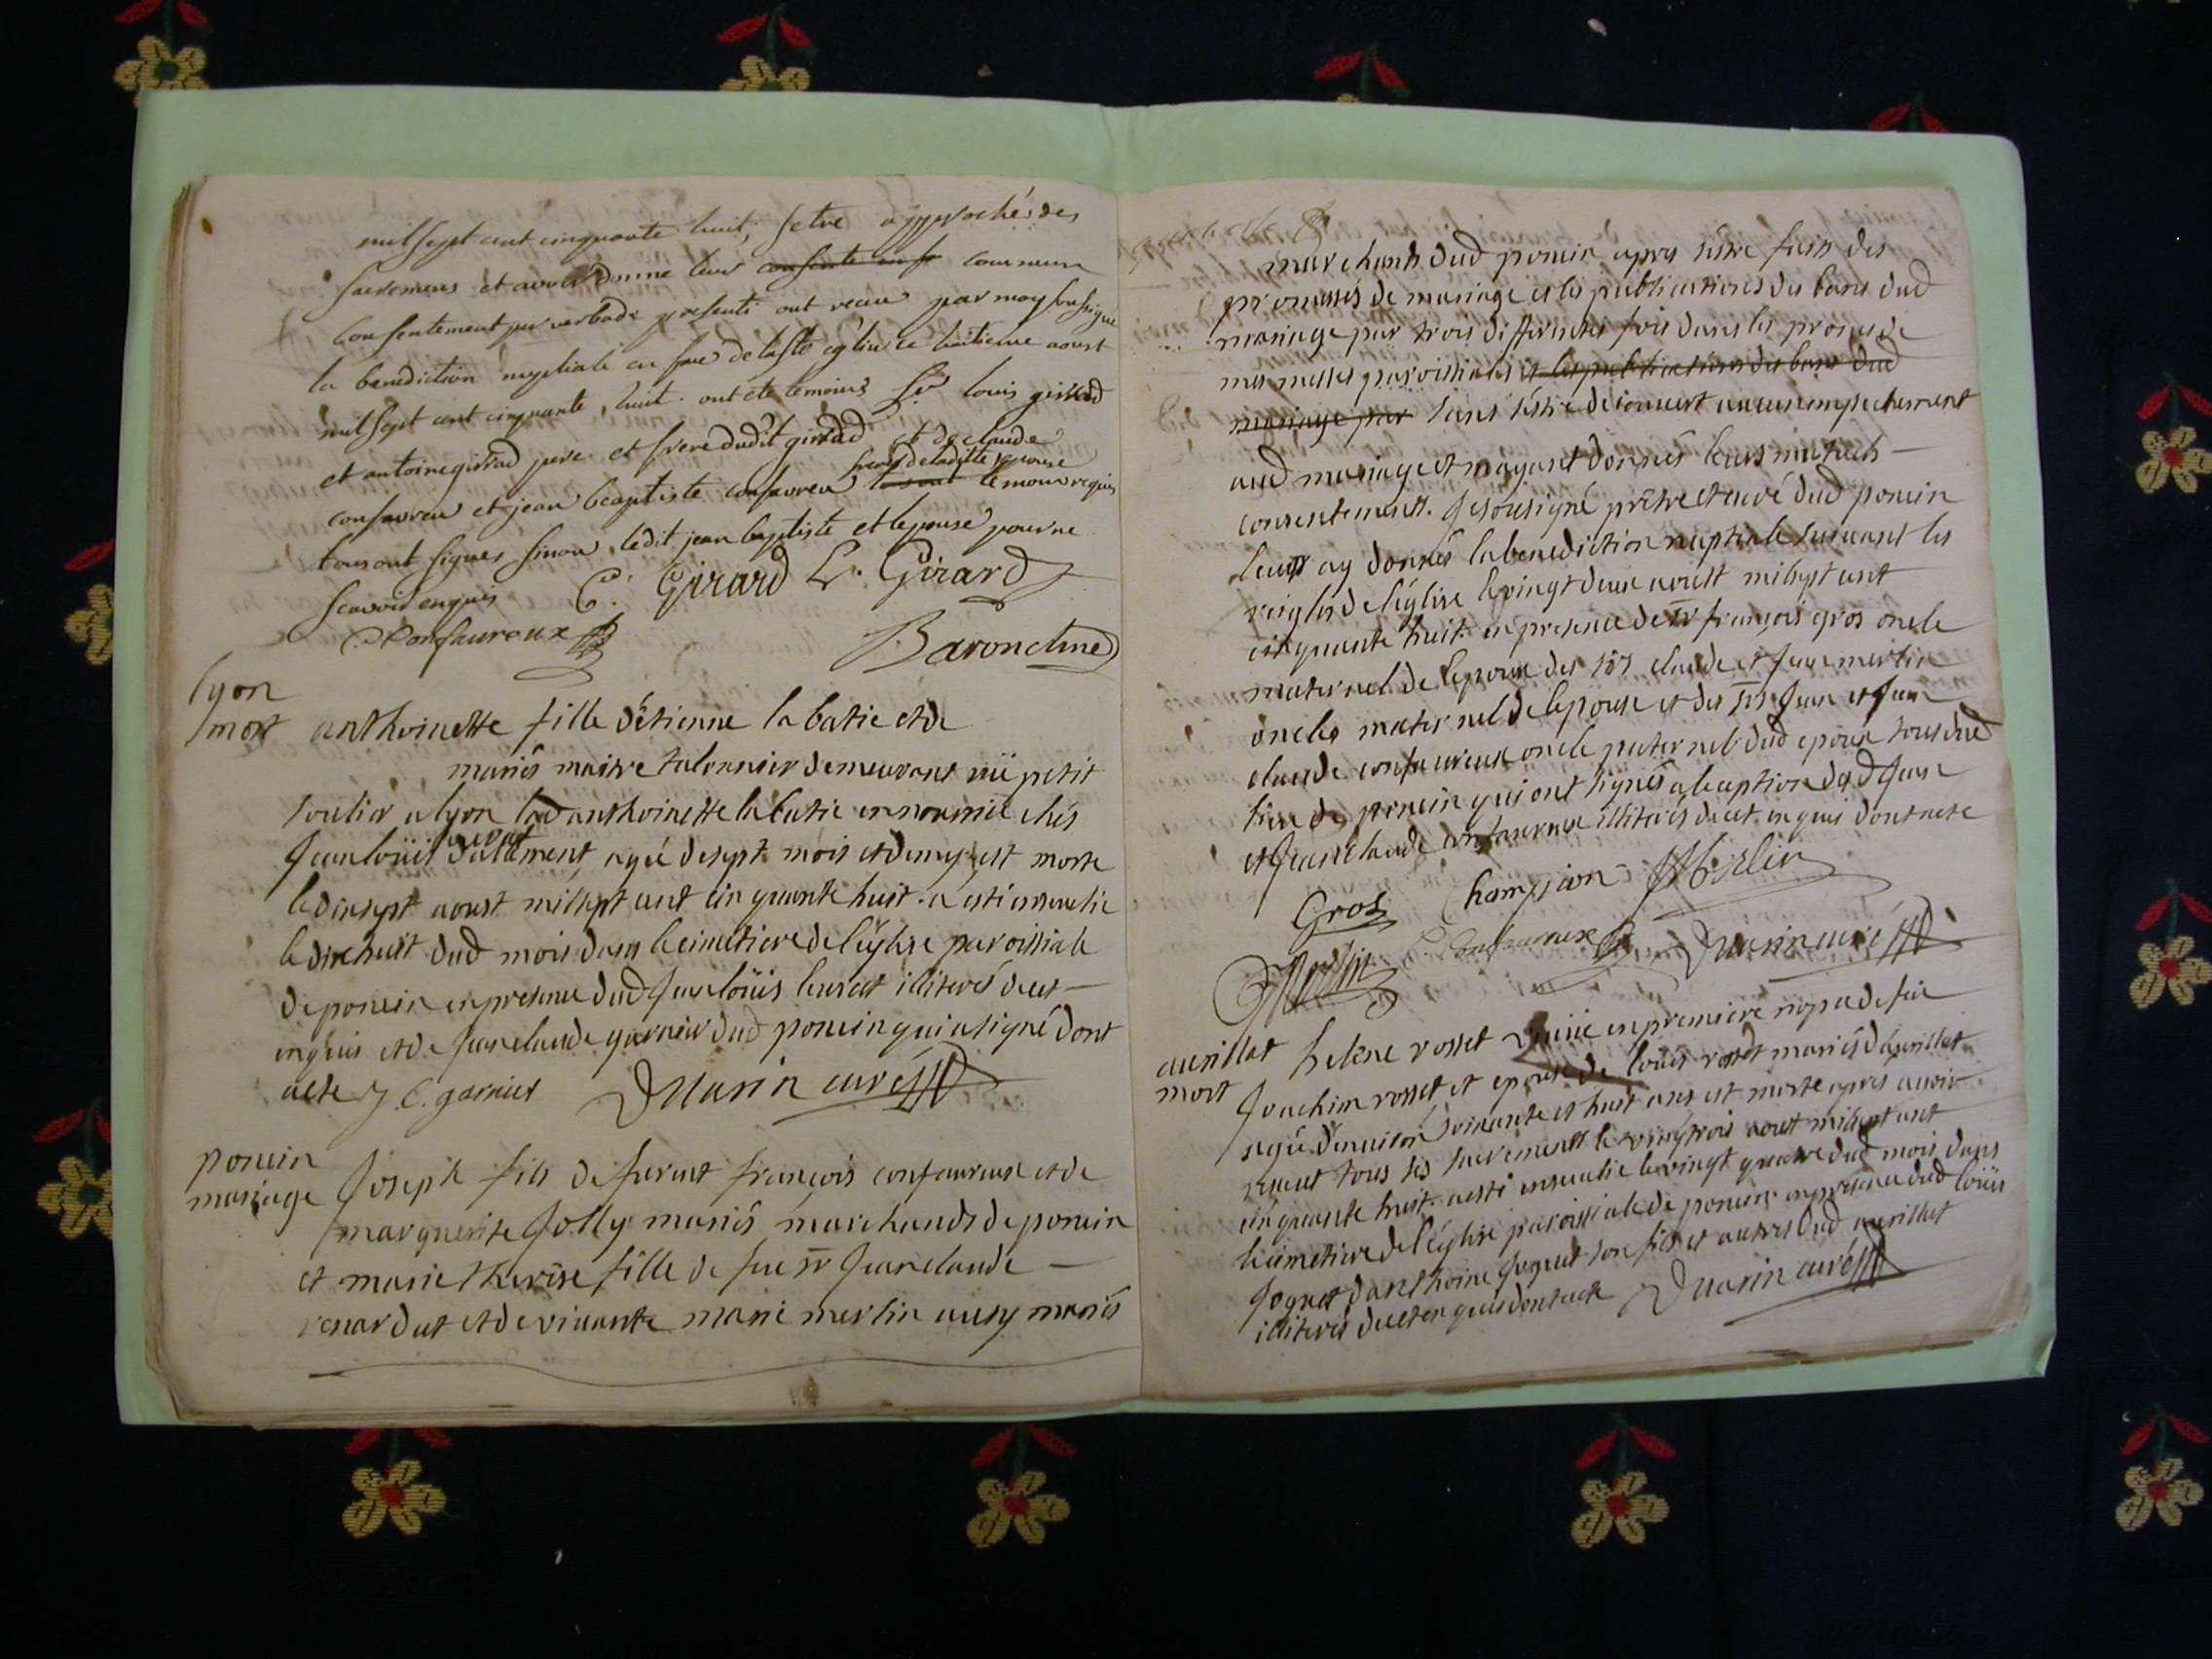 mil sept cent cinquante huit, setre approchés des
sacremens et avoir donné leur consente en f commun
consentement par verbade presenti ont receu par moy soussigné
la benediction nuptiale en face de la ste eglise le huitieme aoust
mil sept cent cinquante huit. ont été temoins Sr louis girrad
et antoine girrad pere et frere dudit girrad et de claude
confavreu et jean beaptiste confavreu freres de laditte epouse temoins requis
tous ont signes sinon ledit jean baptiste et lepouse pour ne
scavoir enquis C. Girard L. Girard
C. Confavreux Baron
lyon
mort anthoinette fille d'étienne la batie et de
mariés maitre talonnier demeurant ruë petit
soulier a lyon lad anthoinette la batie en nourrice chés
Jean loüis leurat dalement, agée de sept mois et demy est morte
le dixsept aoust mil sept cent cinquante huit. a esté ensevelie
le dixhuit dud mois dans le cimetiere de l'église paroissiale
de poncin en presence dud Jean loüis leurat illiteré de cet
enquis et de Jean claude garnier dud poncin qui a signé dont
acte J. C. garnier Duarin curé
poncin
mariage Joseph fils de furent françois confavreux et de
marguerite Jolly mariés marchands de poncin
et marie therese fille de feu sr Jean claude
renardat et de vivante marie merlin aussy mariés
marchands dud poncin apres s'être faits des
promesses de mariage et les publications des bans dud
mariage par trois differentes fois dans les prosnes de
mes messes paroissiales et les publications des bans dud
mariage par sans s'estre découvert aucun empechement
aud mariage et m'ayant donnés leurs mutuels
consentements. Je sousigné prêtre et curé dud poncin
leurs ay donnés la benediction nuptiale suivant les
reigles de l'église le vingt deux aoust mil sept cent
cinquante huit. en presence de sr françois gros oncle
maternel de lepoux des srs claude et Jean merlin
oncles maternel de lepouse et des srs Jean et Jean
claude confavreux oncle paternel dud epoux tous dud
lieu de poncin qui ont signés a l'exception desd Jean
et Jean claude confavreux illiterés de cet enquis dont acte
Gros Champion Merlin
Merlin C. Confavreux Duarin curé
aurillat
mort helene rosset en premiere nopce de feu
Joachim rosset et epouse de loüis rosset mariés d'aurillat
agée d'environ soixante et huit ans est morte apres avoir
receut tous les sacrements le vingtrois aout mil sept cent
cinquante huit. a esté ensevelie le vingt quatre dud mois dans
le cimetiere de l'église paroissiale de poncin en presence dud loüis
Joguet danthoine Joguet son fils et autres dud aurillat
illiterés de cet enquis dont acte Duarin curé